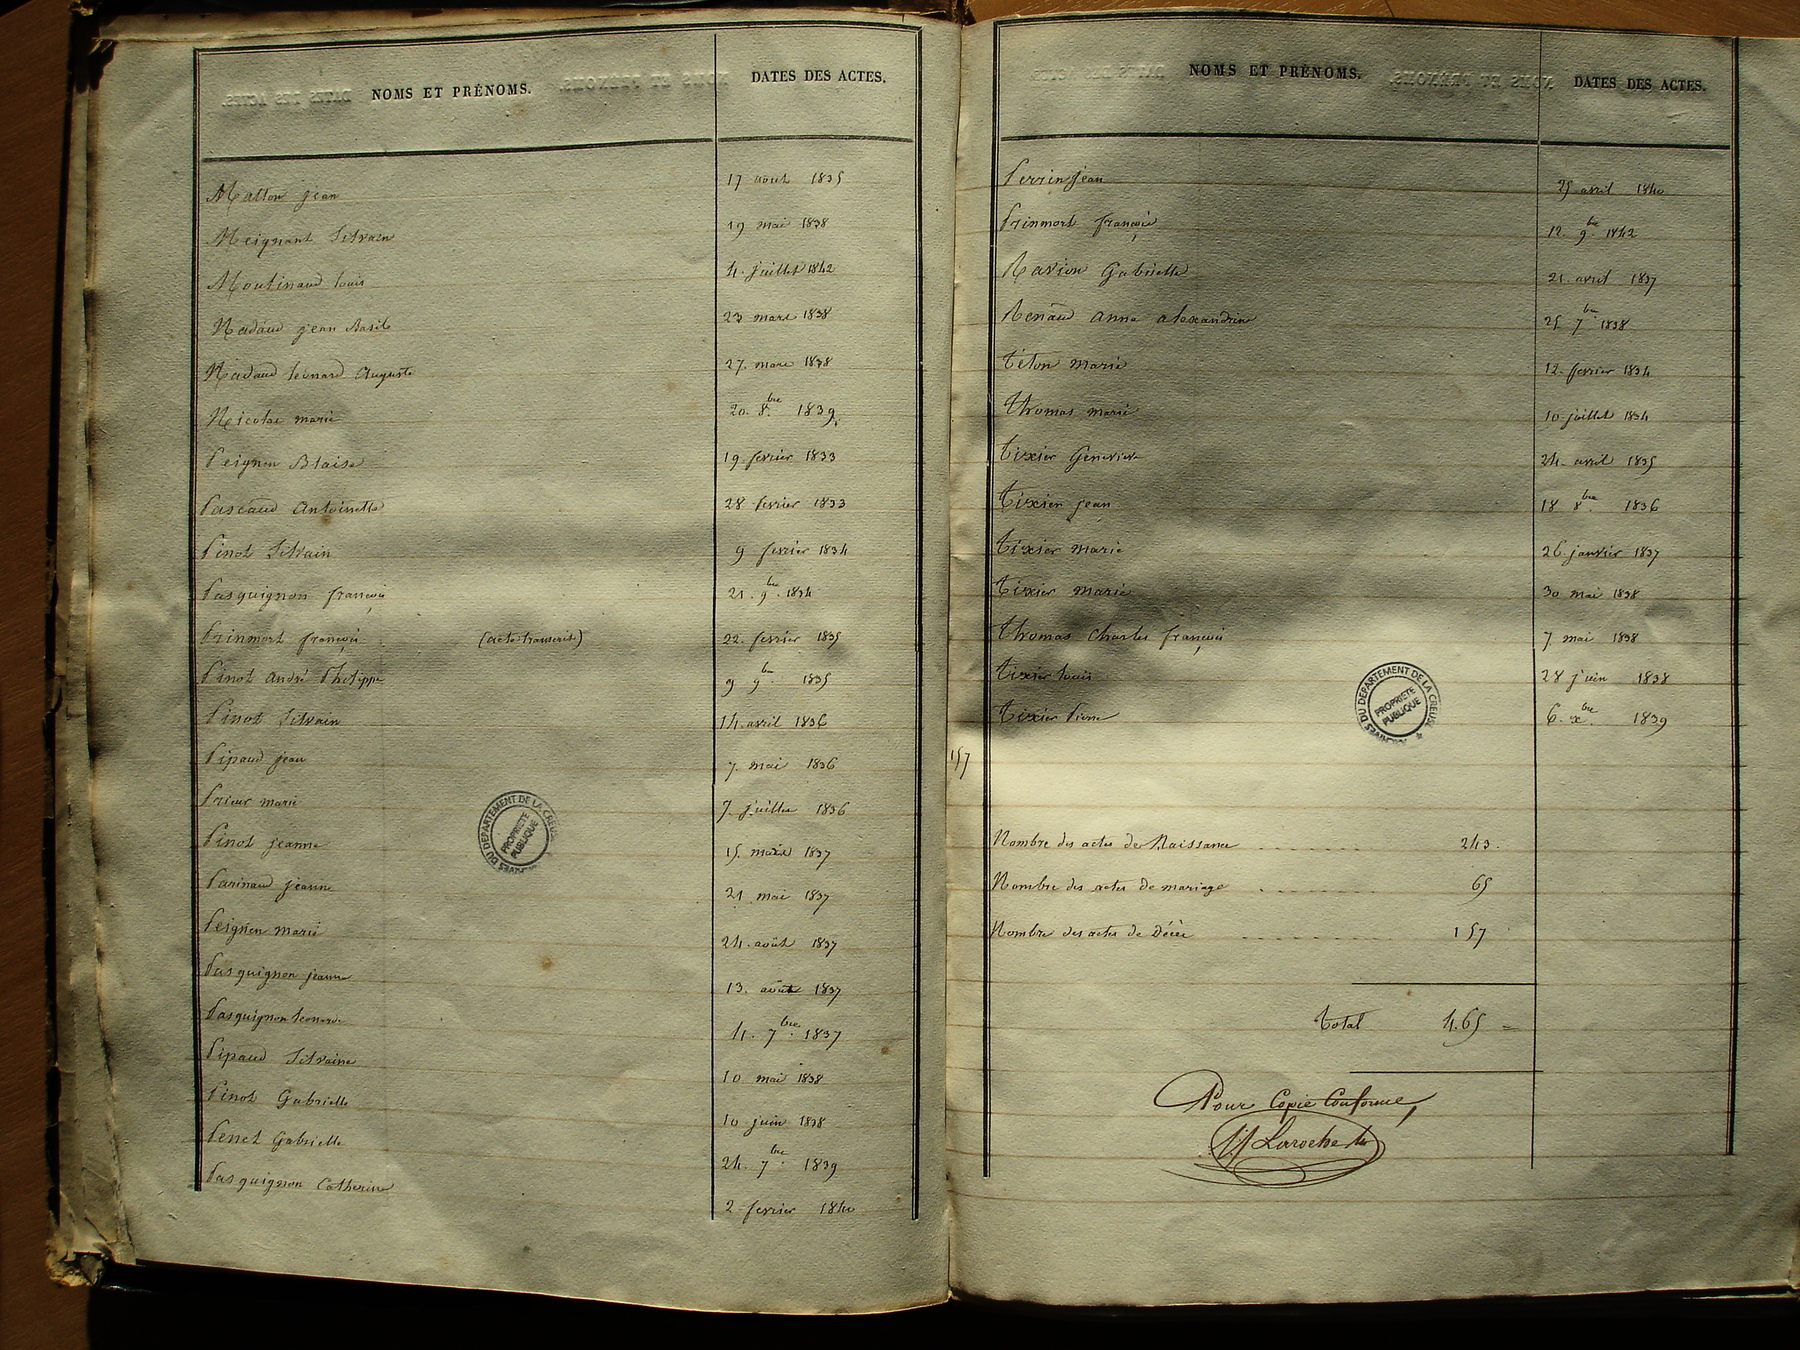 NOMS ET PRÉNOMS. DATES DES ACTES.
Matton jean 17 août 1835
Meignant Silvain 19 mai 1838
Moulinaud louis 4. juillet 1842
Nadaud jean Basile 23 mars 1838
Nadaud léonard Auguste 27. mars 1838
Nicolas marie 20. 8.bre 1839.
Peignen Blaise 19. fevrier 1833
Pascaud Antoinette 28 fevrier 1833
Pinot Silvain 9 fevrier 1834
Pasquignon françois 21. 9.bre 1834
Prinmort françois (acte transcrit) 22. fevrier 1835
Pinot André Philippe 9 9.bre 1835
Pinot Silvain 14. avril 1836
Pipaud jean 7. mai 1836
Prieur marie 7. juillet 1836
Pinot jeanne 15. mars 1837
Parinaud jeanne 21 mai 1837
Peignen marie 24. août 1837
Pasquignon jeanne 13. août 1837
Pasquignon leonarde 4. 7.bre 1837
Pipaud Silvaine 10 mai 1838
Pinot Gabrielle 10 juin 1838
Penet Gabrielle 24. 7.bre 1839
Pasquignon Catherine 2 fevrier 1840
ARCHIVES DU DÉPARTEMENT DE LA CREUSE
PROPRIÉTÉ PUBLIQUE
NOMS ET PRÉNOMS. DATES DES ACTES.
Perrin jean 25 avril 1840
Prinmort françois 12. 9.bre 1842
Ravion Gabrielle 21. avril 1837
Renaud anne alexandrine 25 7.bre 1838
Téton marie 12. fevrier 1834
Thomas marie 10. juillet 1834
Tixier Genevieve 24. avril 1835
Tixier jean 18 8.bre 1836
Tixier marie 26. janvier 1837
Tixier marie 30 mai 1838
Thomas Charles françois 7. mai 1838
Tixier louis 28 juin 1838
Tixier Pierre 6. x.bre 1839
ARCHIVES DU DÉPARTEMENT DE LA CREUSE
PROPRIÉTÉ PUBLIQUE
157
Nombre des actes de Naissance 243.
Nombre des actes de mariage 65
Nombre des actes de Décès 157
Total 465 =
Pour Copie Conforme,
Laroche